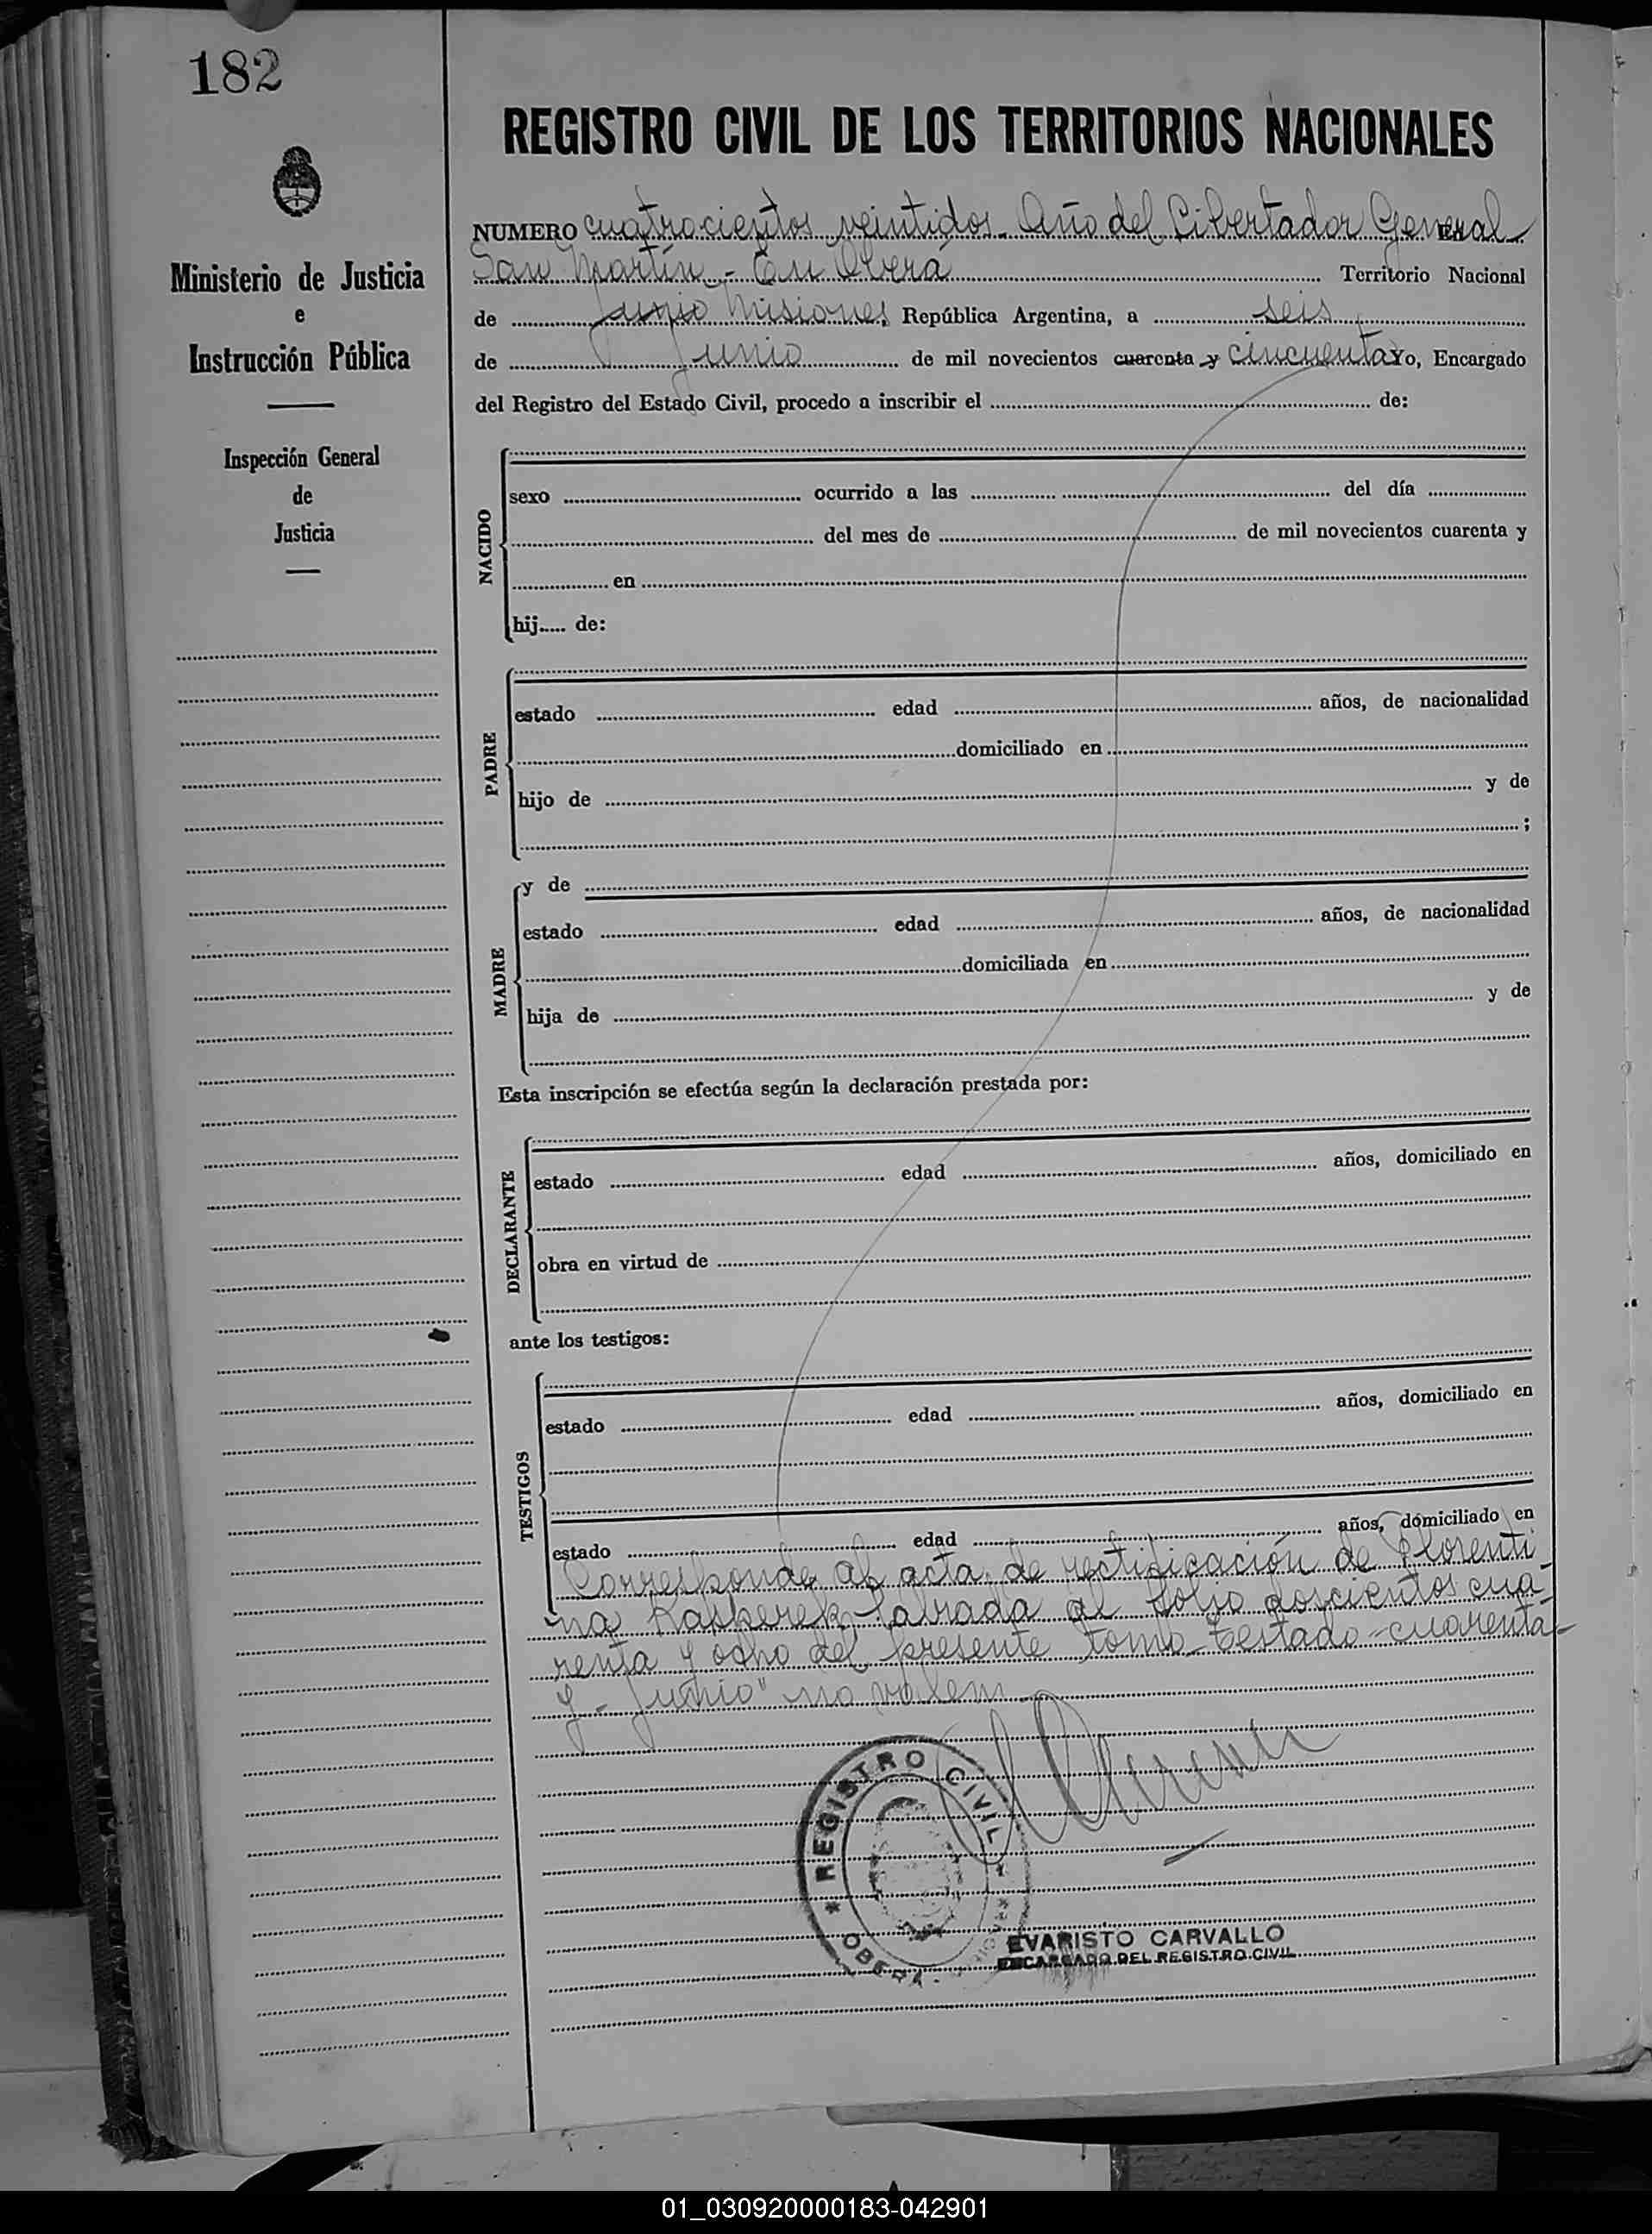 182
REGISTRO CIVIL DE LOS TERRITORIOS NACIONALES
Ministerio de Justicia
e
Instrucción Pública
Inspección General
de
Justicia
NUMERO cuatrocientos veintidos. Año del Libertador General
San Martín.- En Oberá Territorio Nacional
de Junio Misiones República Argentina, a seis
de Junio de mil novecientos cuarenta y cincuenta Yo, Encargado
del Registro del Estado Civil, procedo a inscribir el de:
NACIDO
sexo ocurrido a las del día
del mes de de mil novecientos cuarenta y
en
hij..... de:
PADRE
estado edad años, de nacionalidad
domiciliado en
hijo de y de
;
MADRE
y de
estado edad años, de nacionalidad
domiciliada en
hija de y de
Esta inscripción se efectúa según la declaración prestada por:
DECLARANTE
estado edad años, domiciliado en
obra en virtud de
ante los testigos:
TESTIGOS
estado edad años, domiciliado en
estado edad años, domiciliado en
Corresponde al acta de rectificación de Florenti
na Kasperek labrada al folio doscientos cua-
renta y ocho del presente tomo-testado-cuarenta-
y- Junio" no valen
REGISTRO CIVIL
OBERA
EVARISTO CARVALLO
ENCARGADO DEL REGISTRO CIVIL
01_030920000183-042901